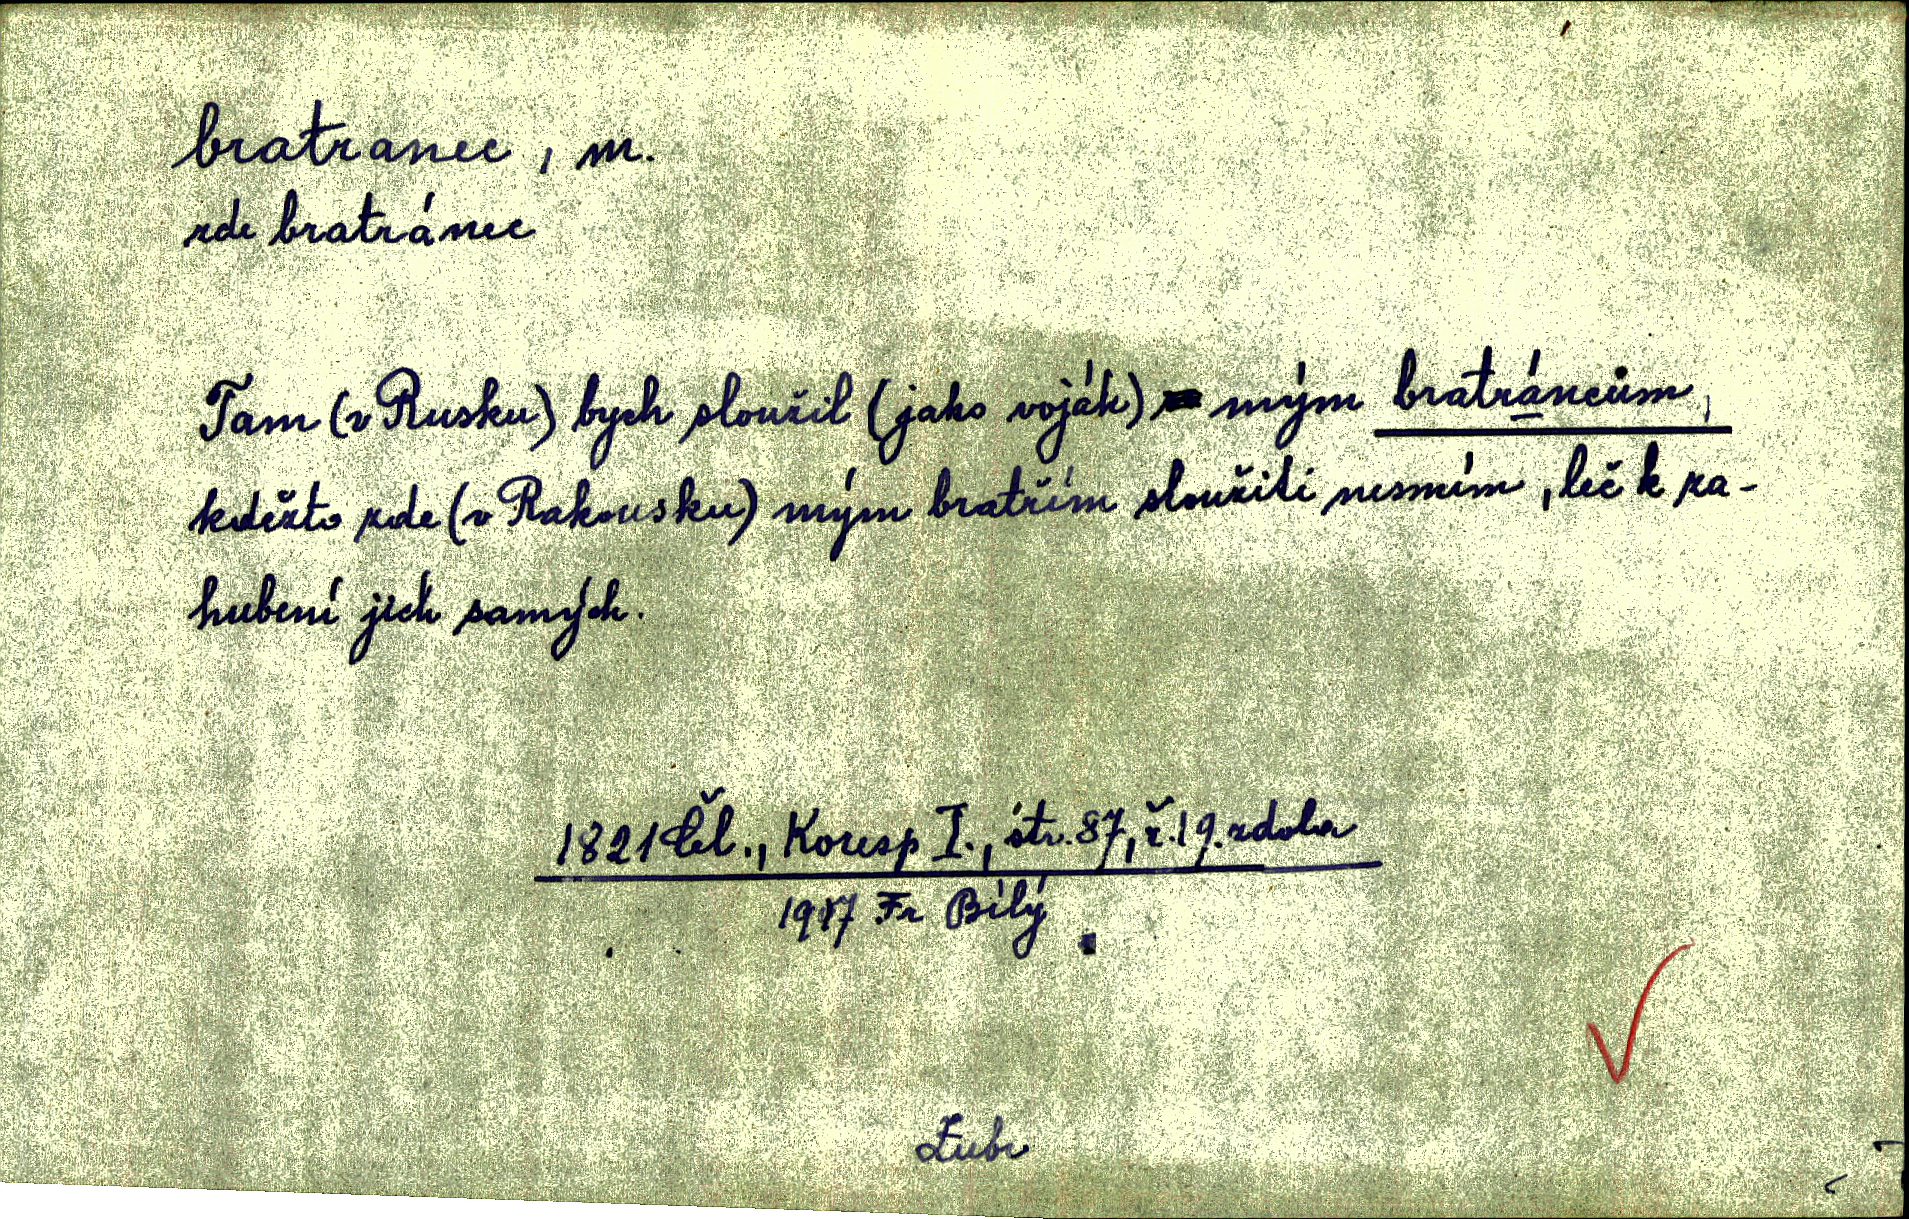 bratranec, m.
zde bratránec
Tam (v Rusku) bych sloužil (jako voják) mým bratráncům,
kdežto zde (v Rakousku) mým bratřím sloužiti nesmím, leč k za-
hubení jich samých.
1821 Čel., Koresp I., str. 87, ř. 19. zdola
1917 Fr Bílý
Zubr